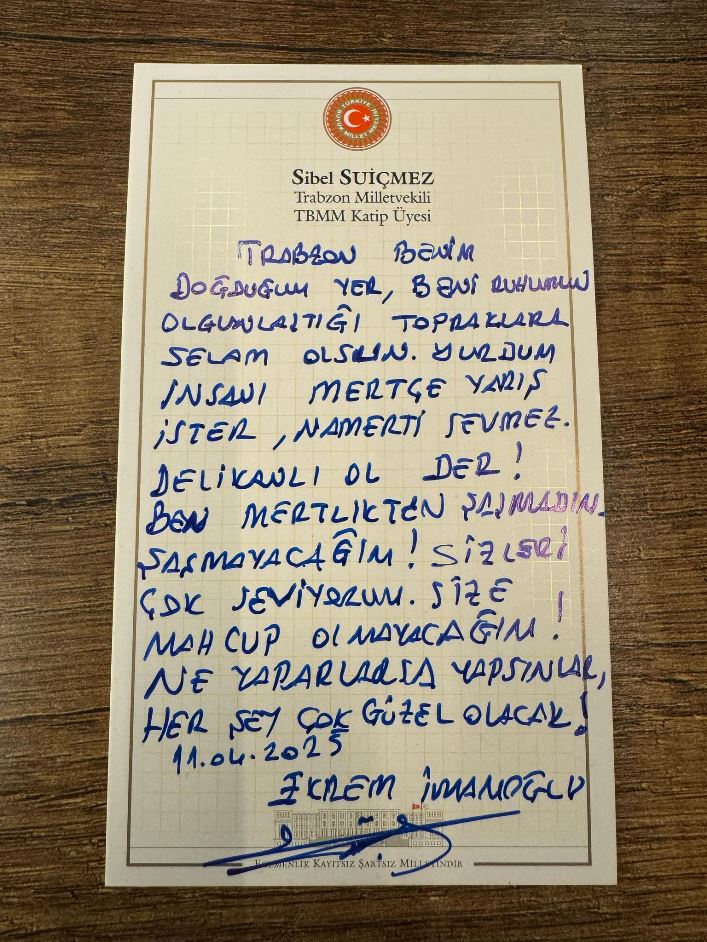 TÜRKİYE BÜYÜK MİLLET MECLİSİ
Sibel SUİÇMEZ
Trabzon Milletvekili
TBMM Katip Üyesi
TRABZON BENİM
DOĞDUĞUM YER, BENİ RUHUMUN
OLGUNLAŞTIĞI TOPRAKLARA
SELAM OLSUN. YURDUM
İNSANI MERTÇE YARIŞ
İSTER, NAMERTİ SEVMEZ.
DELİKANLI OL DER!
BEN MERTLİKTEN ŞAŞMADIM.
ŞAŞMAYACAĞIM! SİZLERİ
ÇOK SEVİYORUM. SİZE
MAHCUP OLMAYACAĞIM!
NE YAPARLARSA YAPSINLAR,
HER ŞEY ÇOK GÜZEL OLACAK!
11.04.2025
EKREM İMAMOĞLU
EGEMENLİK KAYITSIZ ŞARTSIZ MİLLETİNDİR